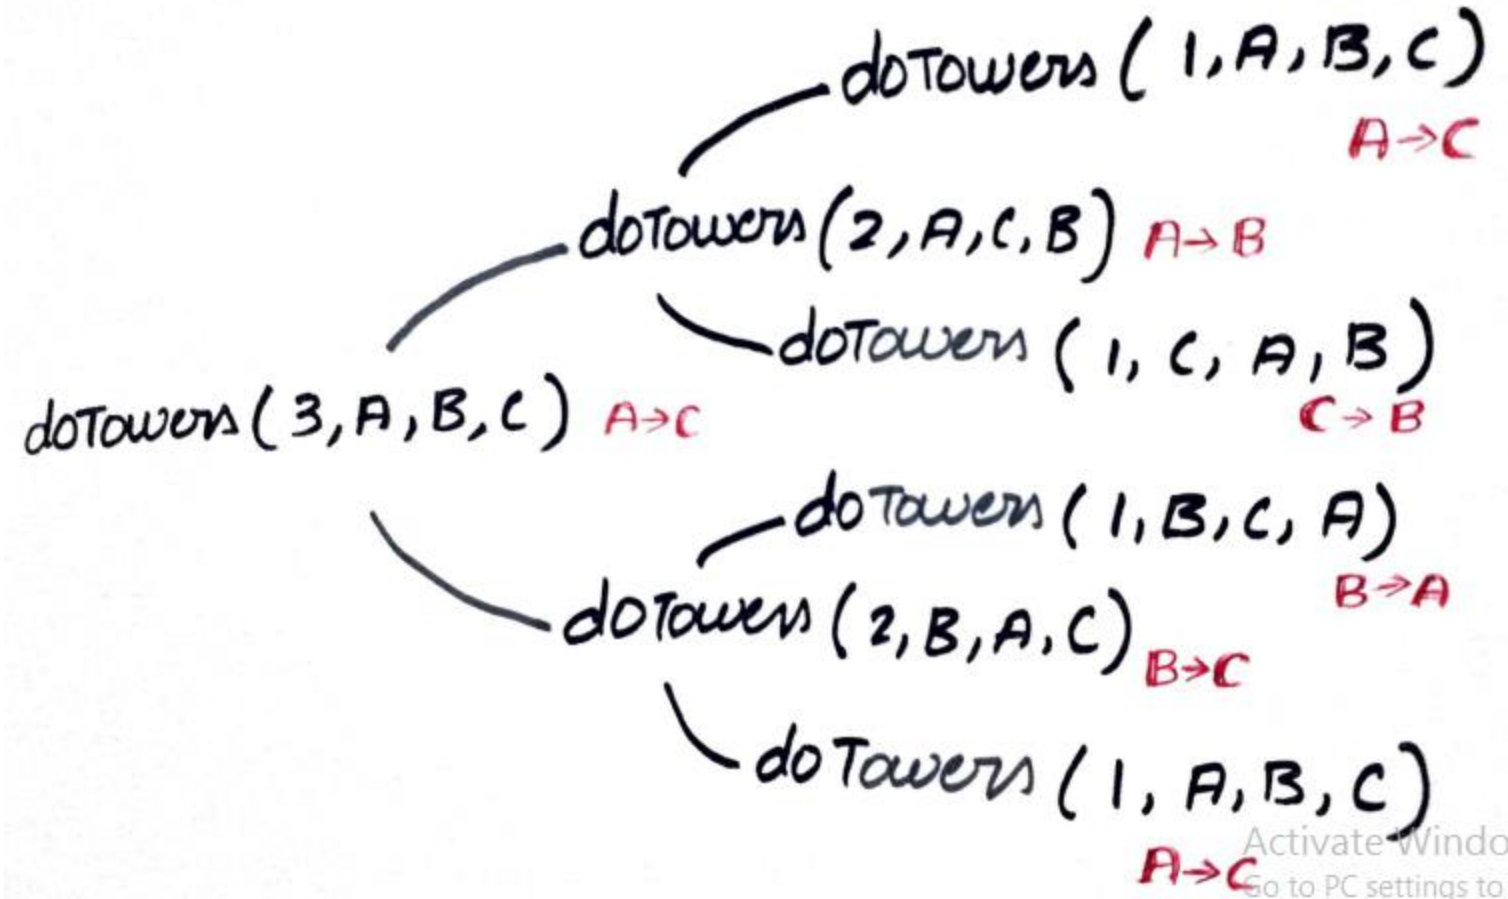 doTowers ( 1, A, B, C )
A→C
doTowers (2, A, C, B) A→B
doTowers ( 1, C, A, B )
C→B
doTowers ( 3, A, B, C ) A→C
doTowers ( 1, B, C, A )
B→A
doTowers ( 2, B, A, C )
B→C
doTowers ( 1, A, B, C )
Activate Windo
A→C
Go to PC settings to